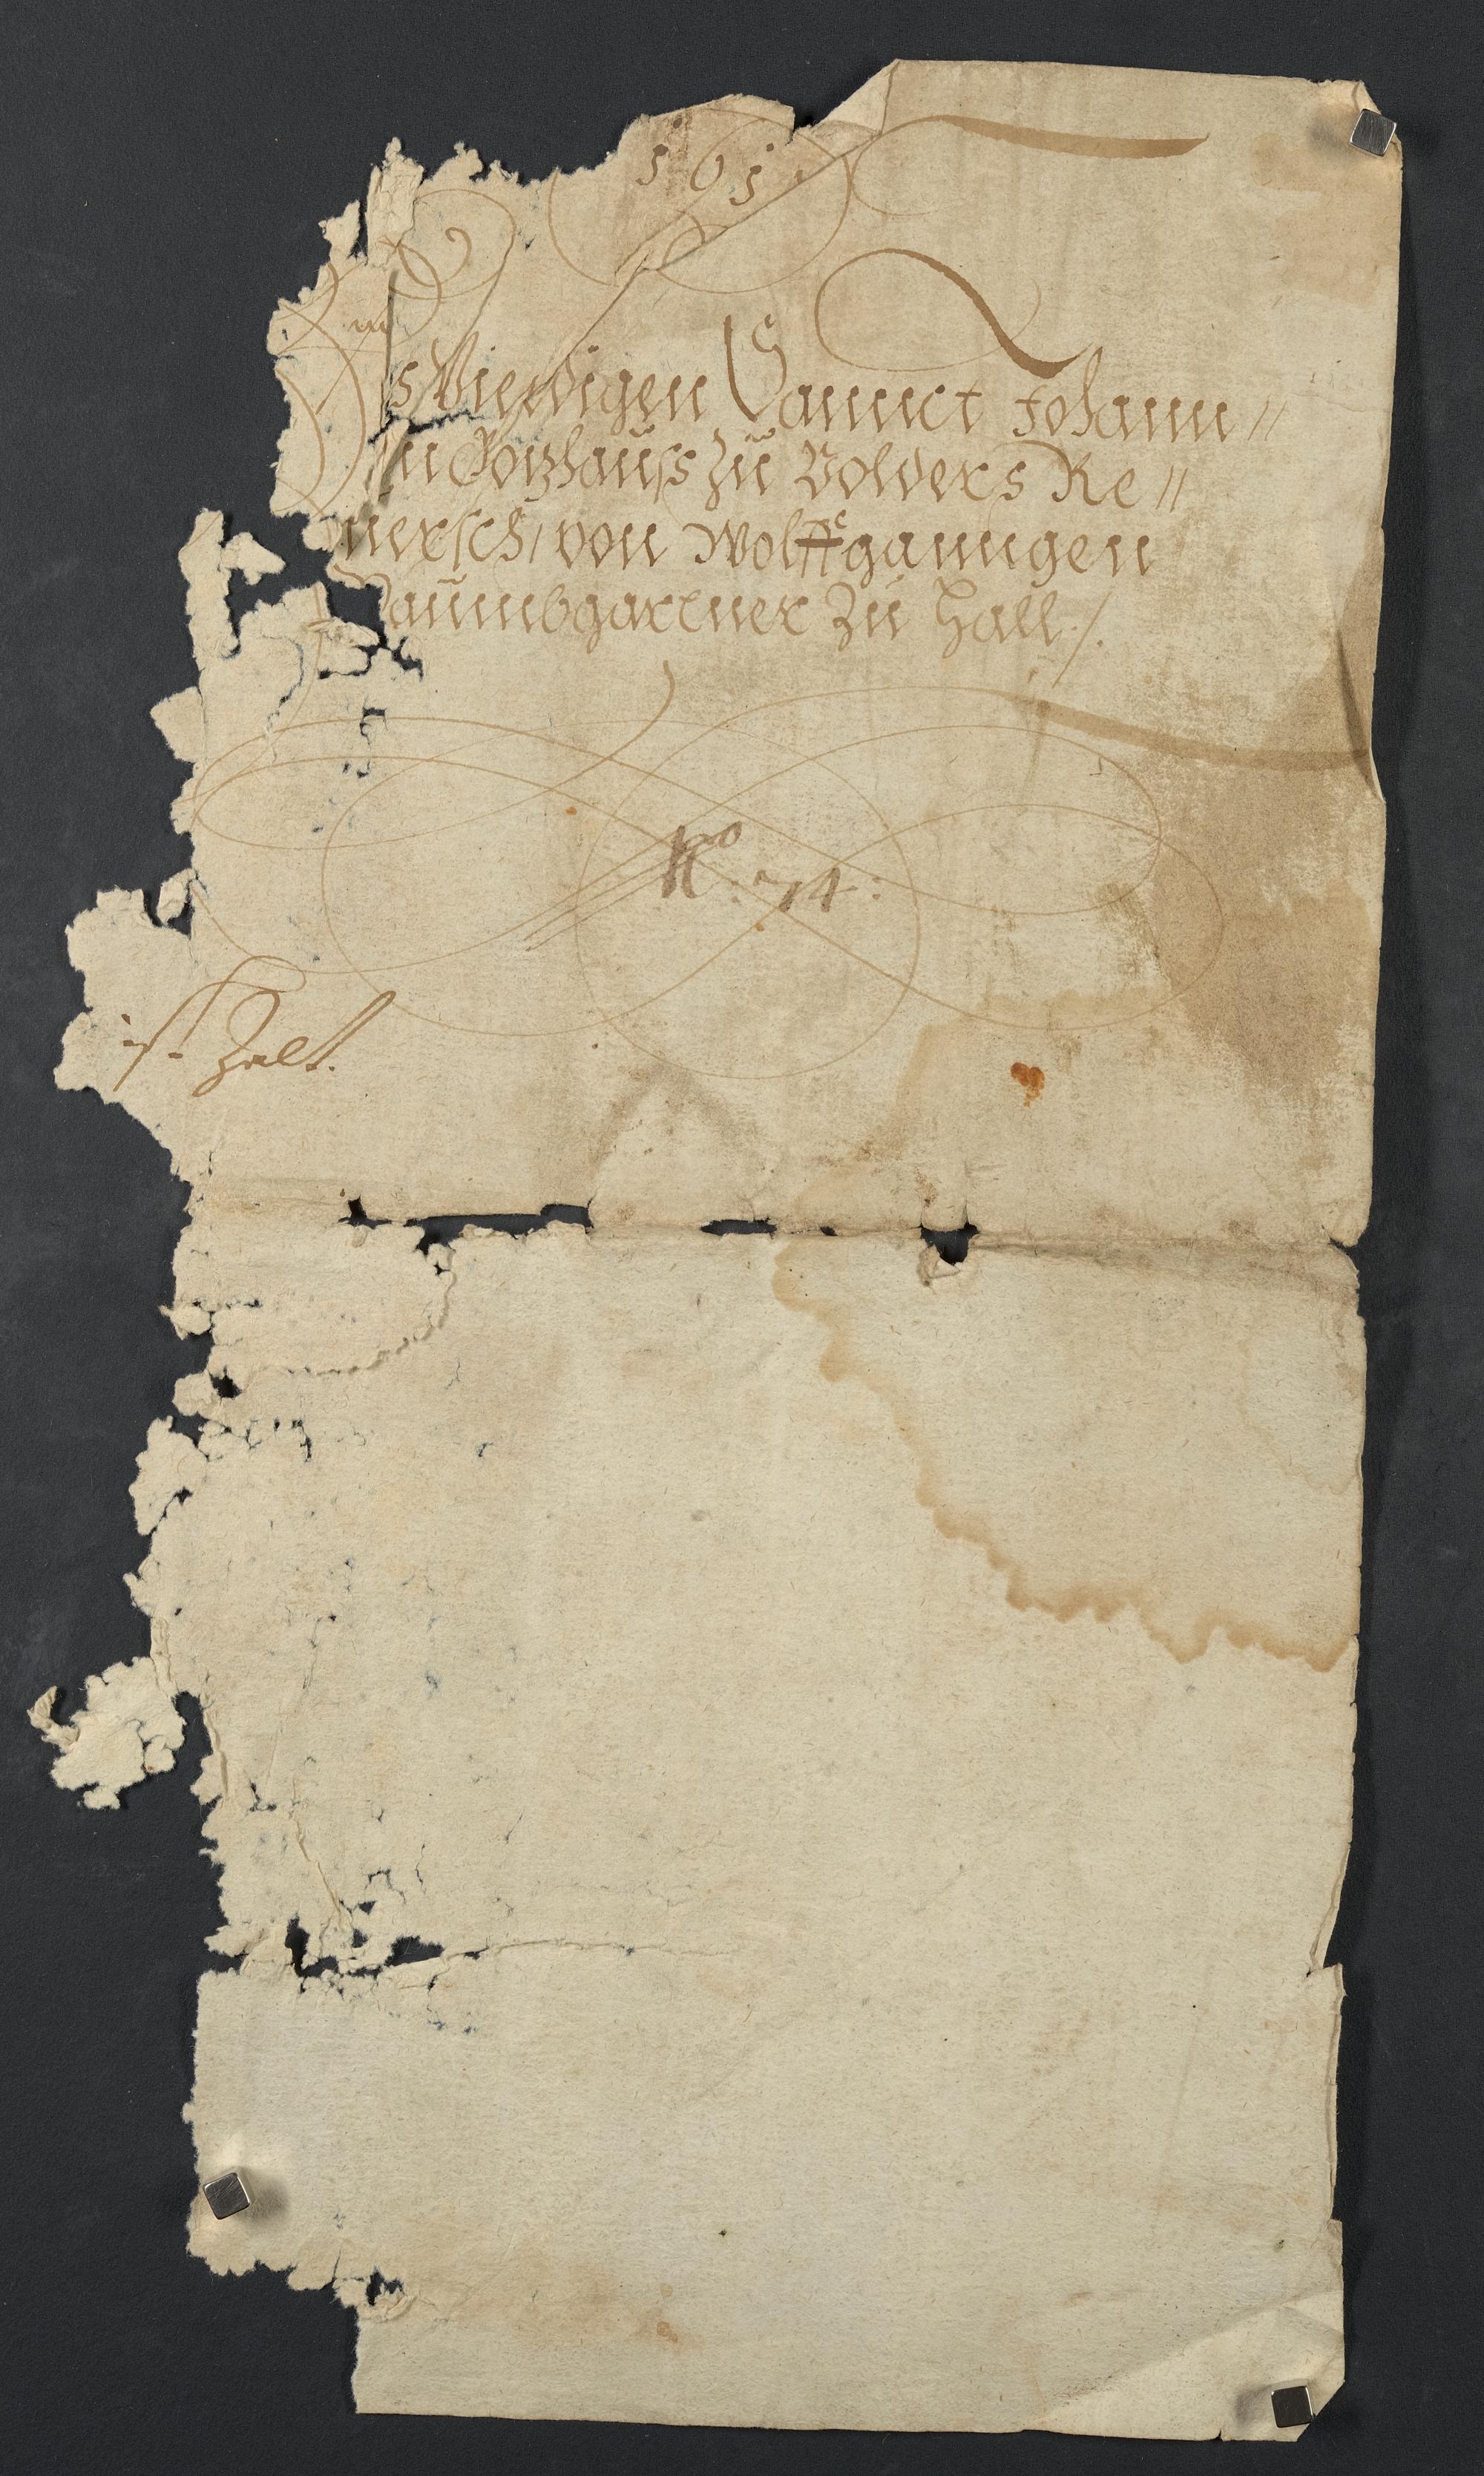 565
s Wierdigen Sannct Johann //
n Gotzhauss zu Volders Re //
uersch, von Wolffganngen
Paumbgartner zu Hall /.
No: 74:
ist Zalt.